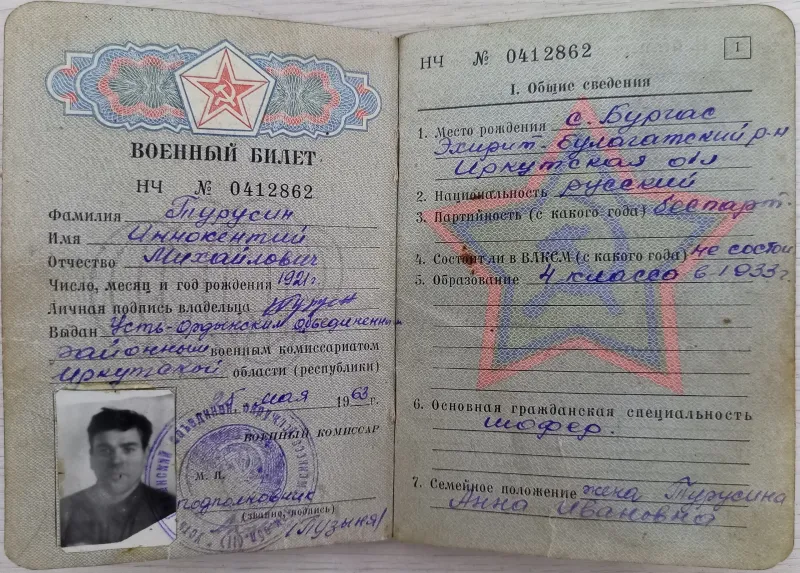 ВОЕННЫЙ БИЛЕТ
НЧ № 0412862
Фамилия Турусин
Имя Иннокентий
Отчество Михайлович
Число, месяц и год рождения 1921г.
Личная подпись владельца
Выдан Усть-Ордынским объединенным
районным военным комиссариатом
Иркутской области (республики)
25 мая 1963 г.
ВОЕННЫЙ КОМИССАР
М. П.
подполковник
(звание, подпись)
/Пузыня/
НЧ № 0412862
1
I. Общие сведения
1. Место рождения с. Бургас
Эхирит-Булагатский р-н
Иркутская обл
2. Национальность русский
3. Партийность (с какого года) беспарт.
4. Состоял ли в ВЛКСМ (с какого года) не состоял
5. Образование 4 класса в 1933г.
6. Основная гражданская специальность
шофер.
7. Семейное положение жена Турусина
Анна Ивановна